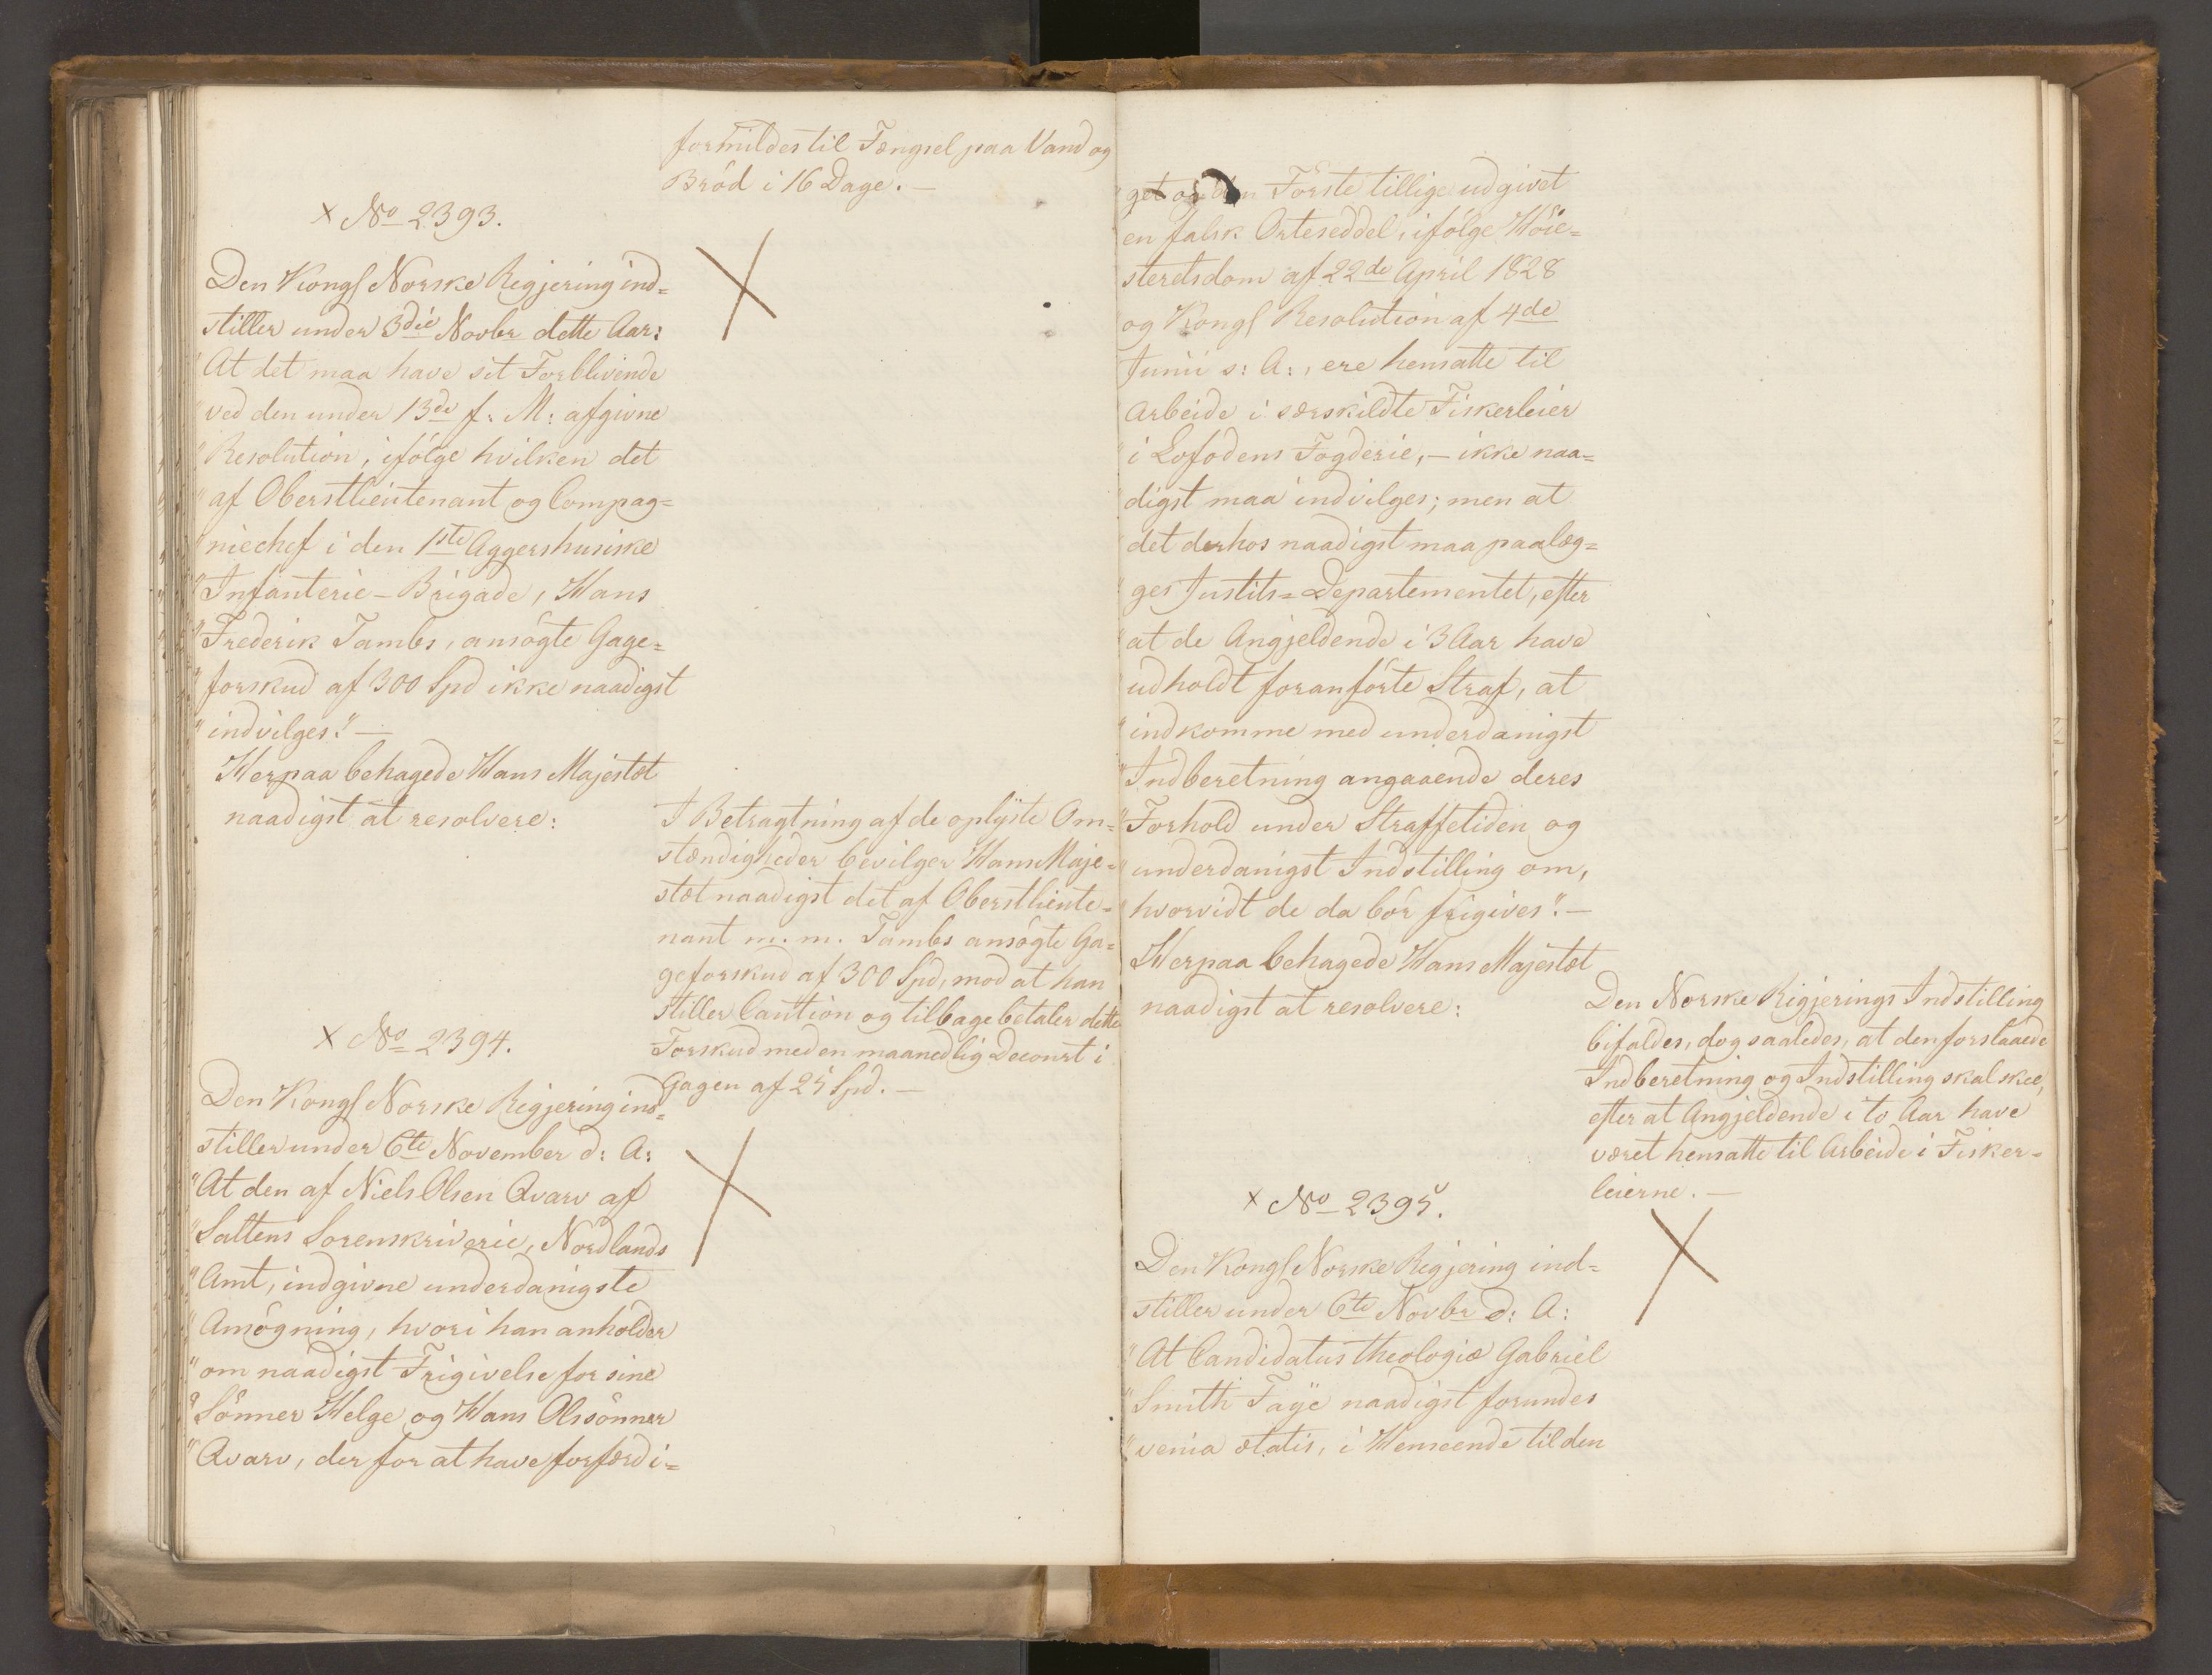 formildes til Fængsel paa Vand og
Bröd i 16 Dage. —
× No 2393.
Den Kongl Norske Regjering ind=
stiller under 3die Novbr dette Aar:
"At det maa have sit Forblivende
"ved den under 13de f: M: afgivne
"Resolution, ifölge hvilken det
"af Oberstlieutenant og Compag=
"niechef i den 1ste Aggershusiske
"Infanterie-Brigade, Hans
"Frederik Tambs, ansögte Gage=
"forskud af 300 Spd ikke naadigst
"indvilges." —
Herpaa behagede Hans Majestæt
naadigst at resolvere:
I Betragtning af de oplyste Om=
stændigheder bevilger Hans Maje=
stæt naadigst det af Oberstliente=
nant m. m. Tambs ansögte Ga=
geforskud af 300 Spd, mod at han
stiller Caution og tilbagebetaler dette
Forskud med en maanedlig Decourt i
Gagen af 25 Spd. —
× No 2394.
Den Kongl Norske Regjering ind=
stiller under 6te November d: A:
"At den af Niels Olsen Qvarv af
"Saltens Sorenskriverie, Nordlands
"Amt, indgivne underdanigste
"Ansögning, hvori han anholder
"om naadigst Frigivelse for sine
"Sönner Helge og Hans Olssönner
"Qvarv, der for at have forfærdi=
"get og den Förste tillige udgivet
en falsk Orteseddel, ifölge Höie=
steretsdom af 22de April 1828
og Kongl Resolution af 4de
Junii s: A:, ere hensatte til
Arbeide i særskildte Fiskerleier
"i Lofodens Fogderie, — ikke naa=
digst maa indvilges; men at
det derhos naadigst maa paalæg=
"ges Justits=Departementet, efter
"at de Angjeldende i 3 Aar have
udholdt foranförte Straf, at
"indkomme med underdanigst
"Indberetning angaaende deres
"Forhold under Straffetiden og
"underdanigst Indstilling om,
"hvorvidt de da bör frigives". —
Herpaa behagede Hans Majestæt
naadigst at resolvere:
Den Norske Regjerings Indstilling
bifaldes, dog saaledes, at den forslaaede
Indberetning og Indstilling skal skee,
efter at Angjeldende i to Aar have
været hensatte til Arbeide i Fisker=
leierne. —
× No 2395.
Den Kongl Norske Regjering ind=
stiller under 6te Novbr d: A:
"At Candidatus theologiæ Gabriel
"Smith Faye naadigst forundes
"venia ætatis, i Henseende til den